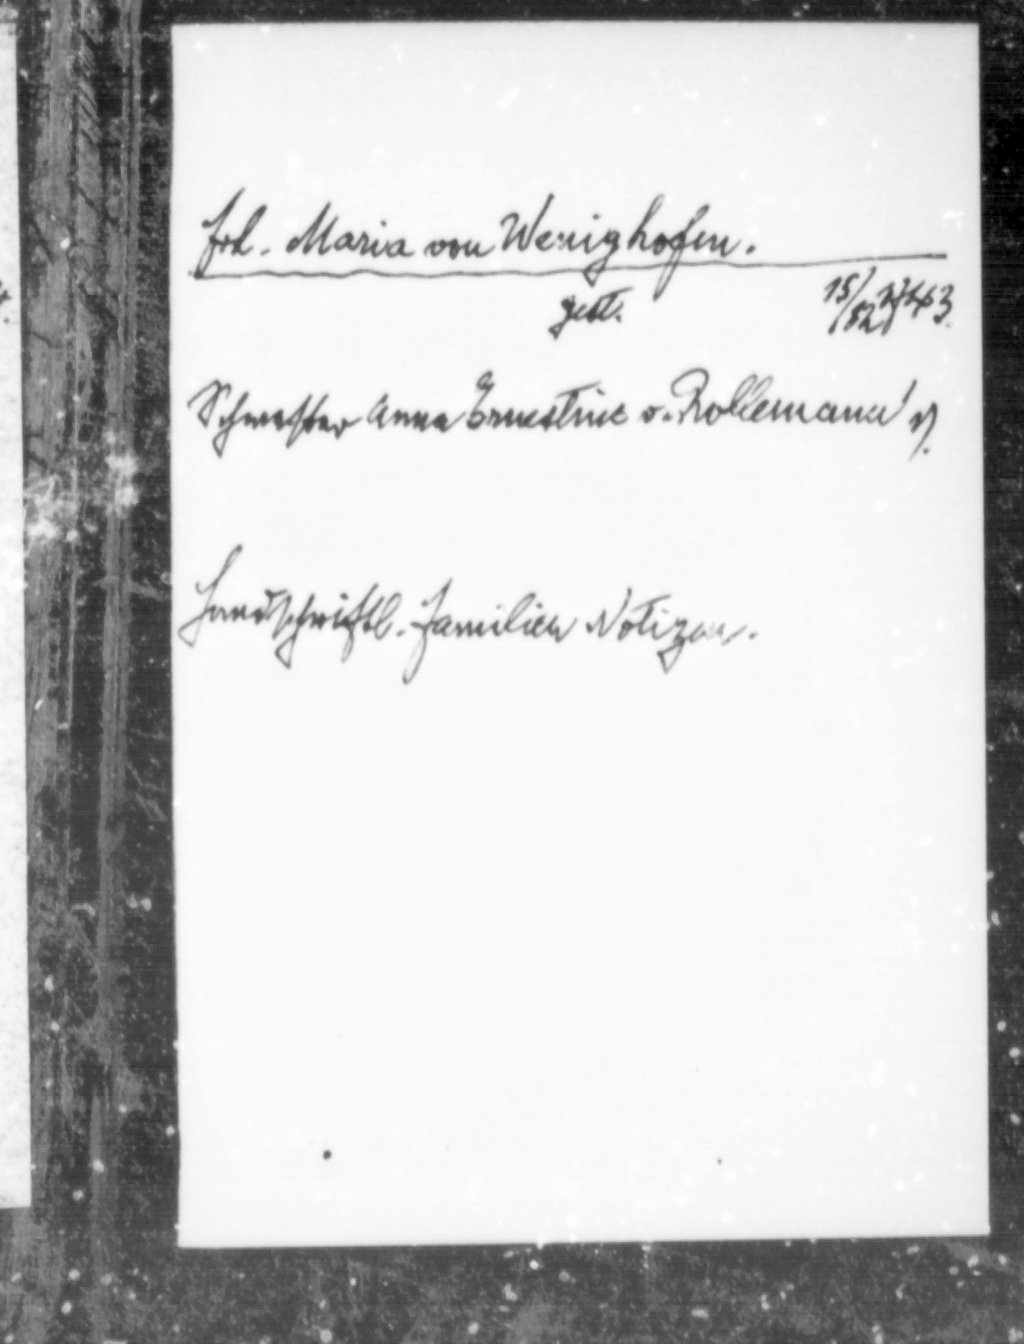 Frl. Maria von Wenighofen.
gest. 15/
Schwester Anna Ernestine v. Rollemann'
Handschriftl. Familien Notizen.